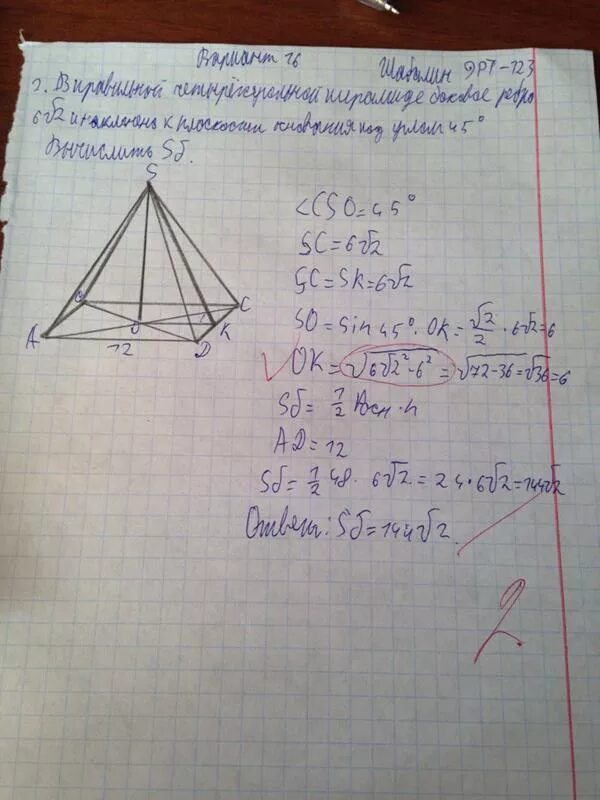 Вариант 16
Шабалин ЭРТ-123
2. В правильной четырёхугольной пирамиде боковое ребро
6√2 и наклонено к плоскости основания под углом 45°
Вычислить Sб.
S
A
O
C
K
D
12
<CSO=45°
SC=6√2
SC=SK=6√2
SO=Sin45°·OK=√2/2·6√2=6
OK=√(6√2²-6²)=√(72-36)=√36=6
Sб=1/2 Pосн·h
AD=12
Sб=1/2 48·6√2=24·6√2=144√2
Ответ: Sб=144√2.
2